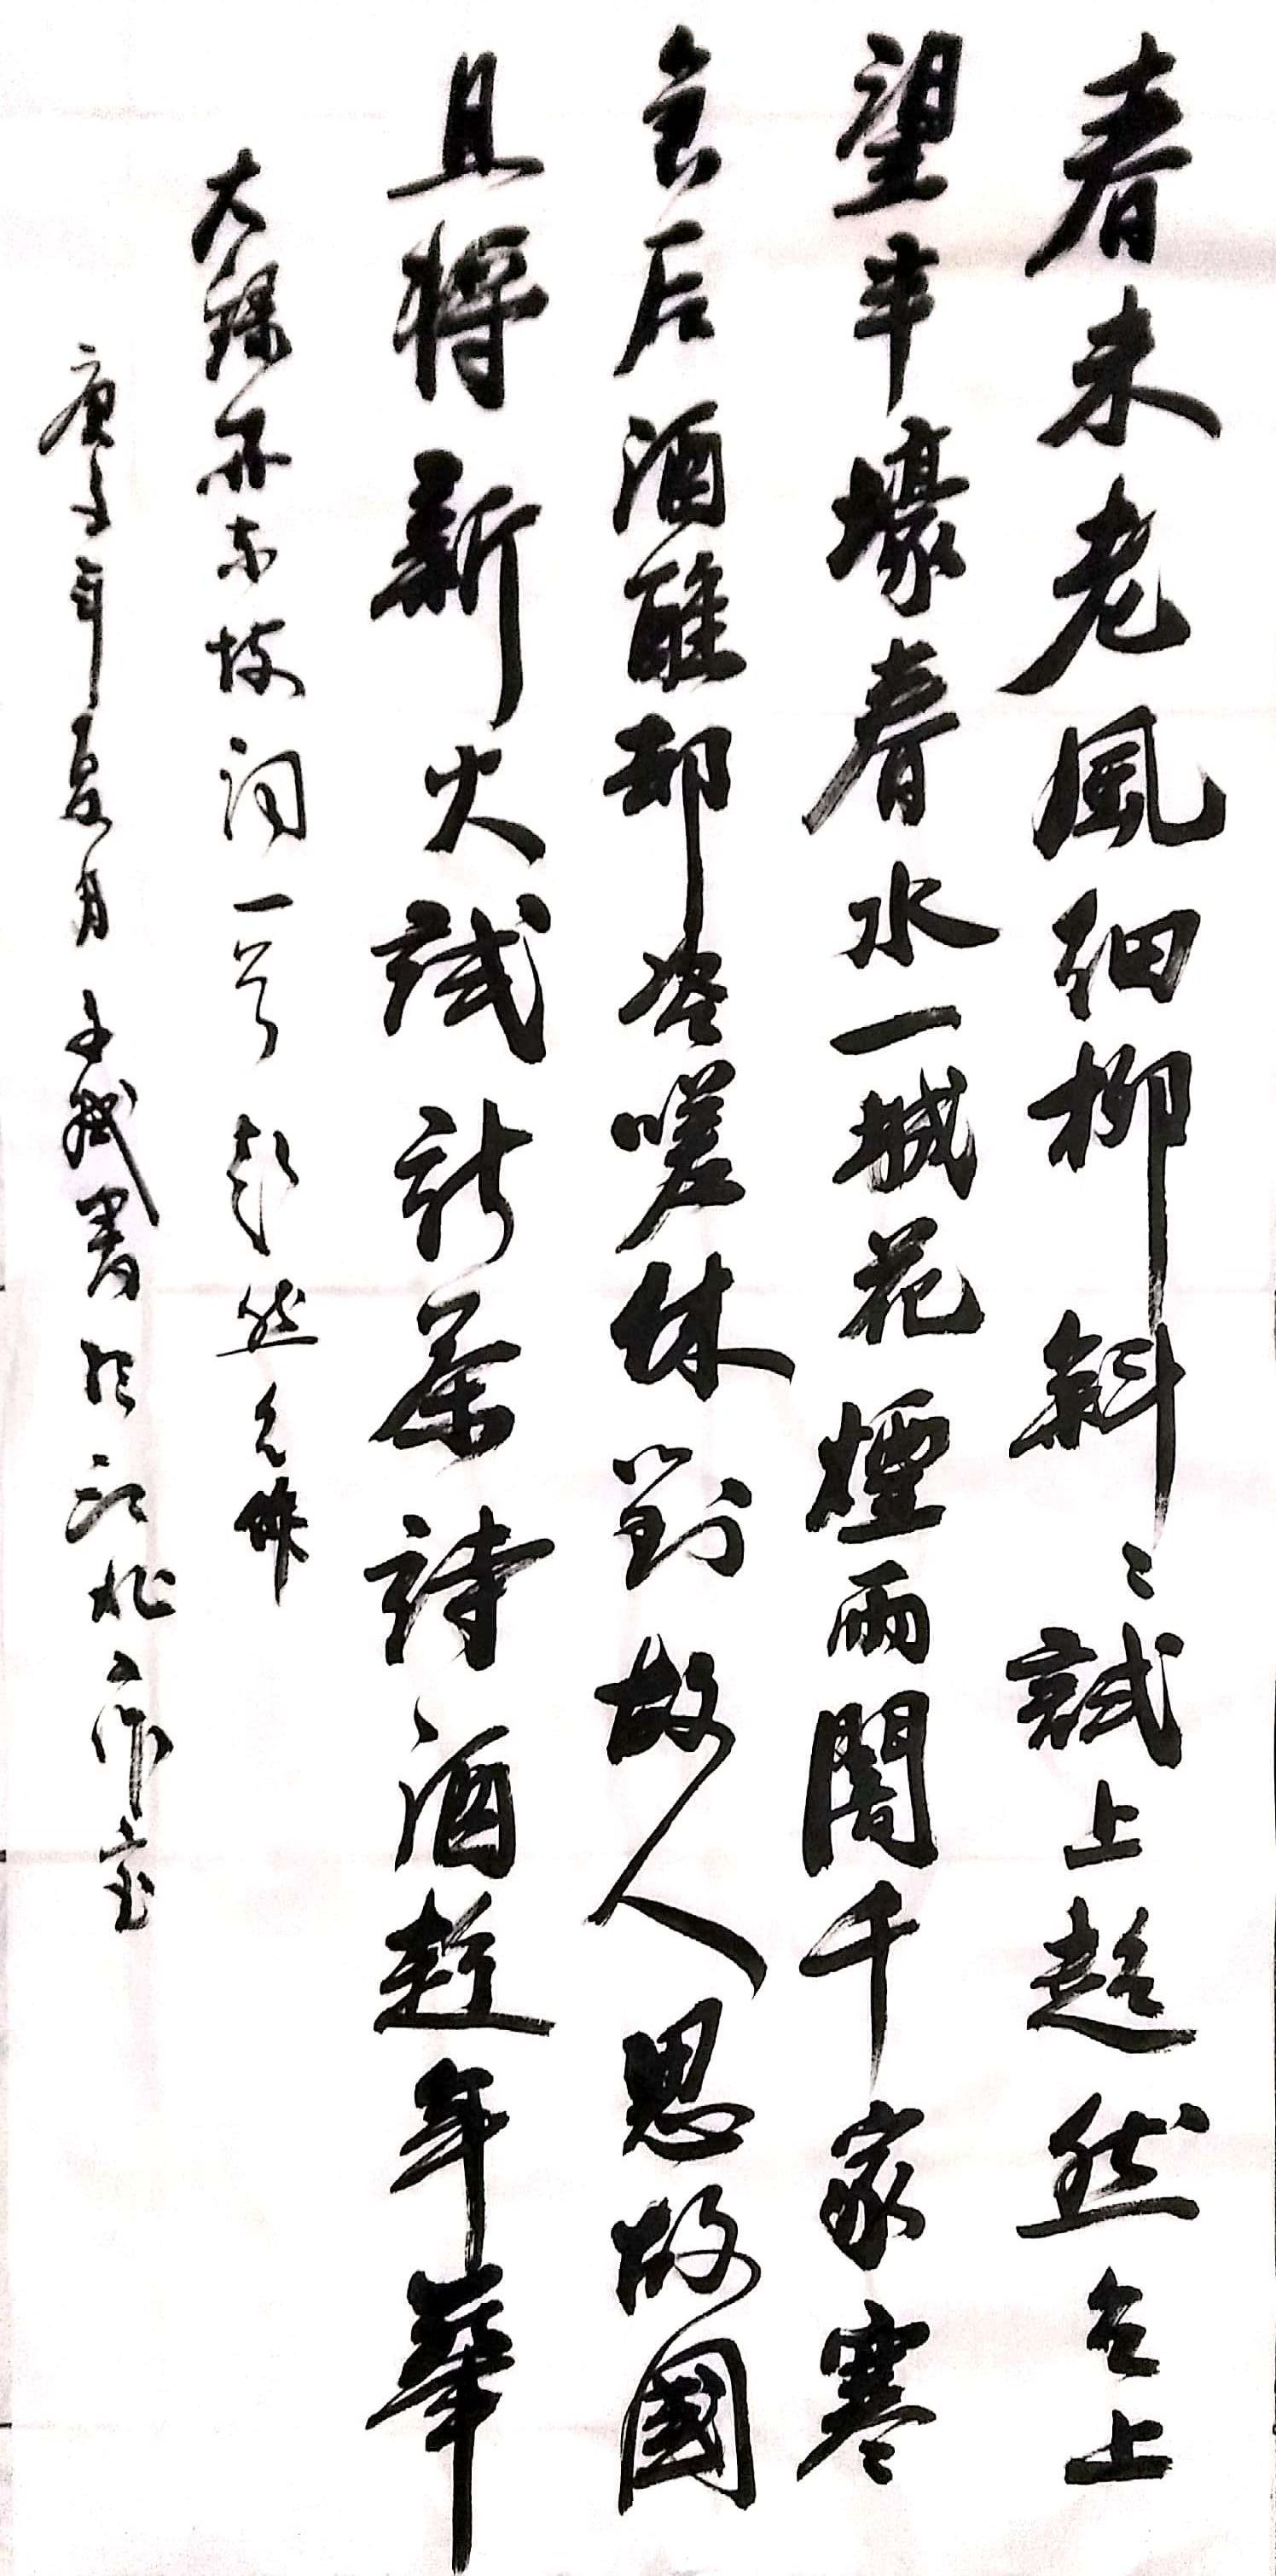 春未老風細柳斜〻試上超然台上
望半壕春水一城花煙雨闇千家寒
食后酒醒却咨嗟休對故人思故國
且將新火試新茶詩酒趁年華
錄蘇东坡词一首超然台作
庚子年夏月書於江北工作室